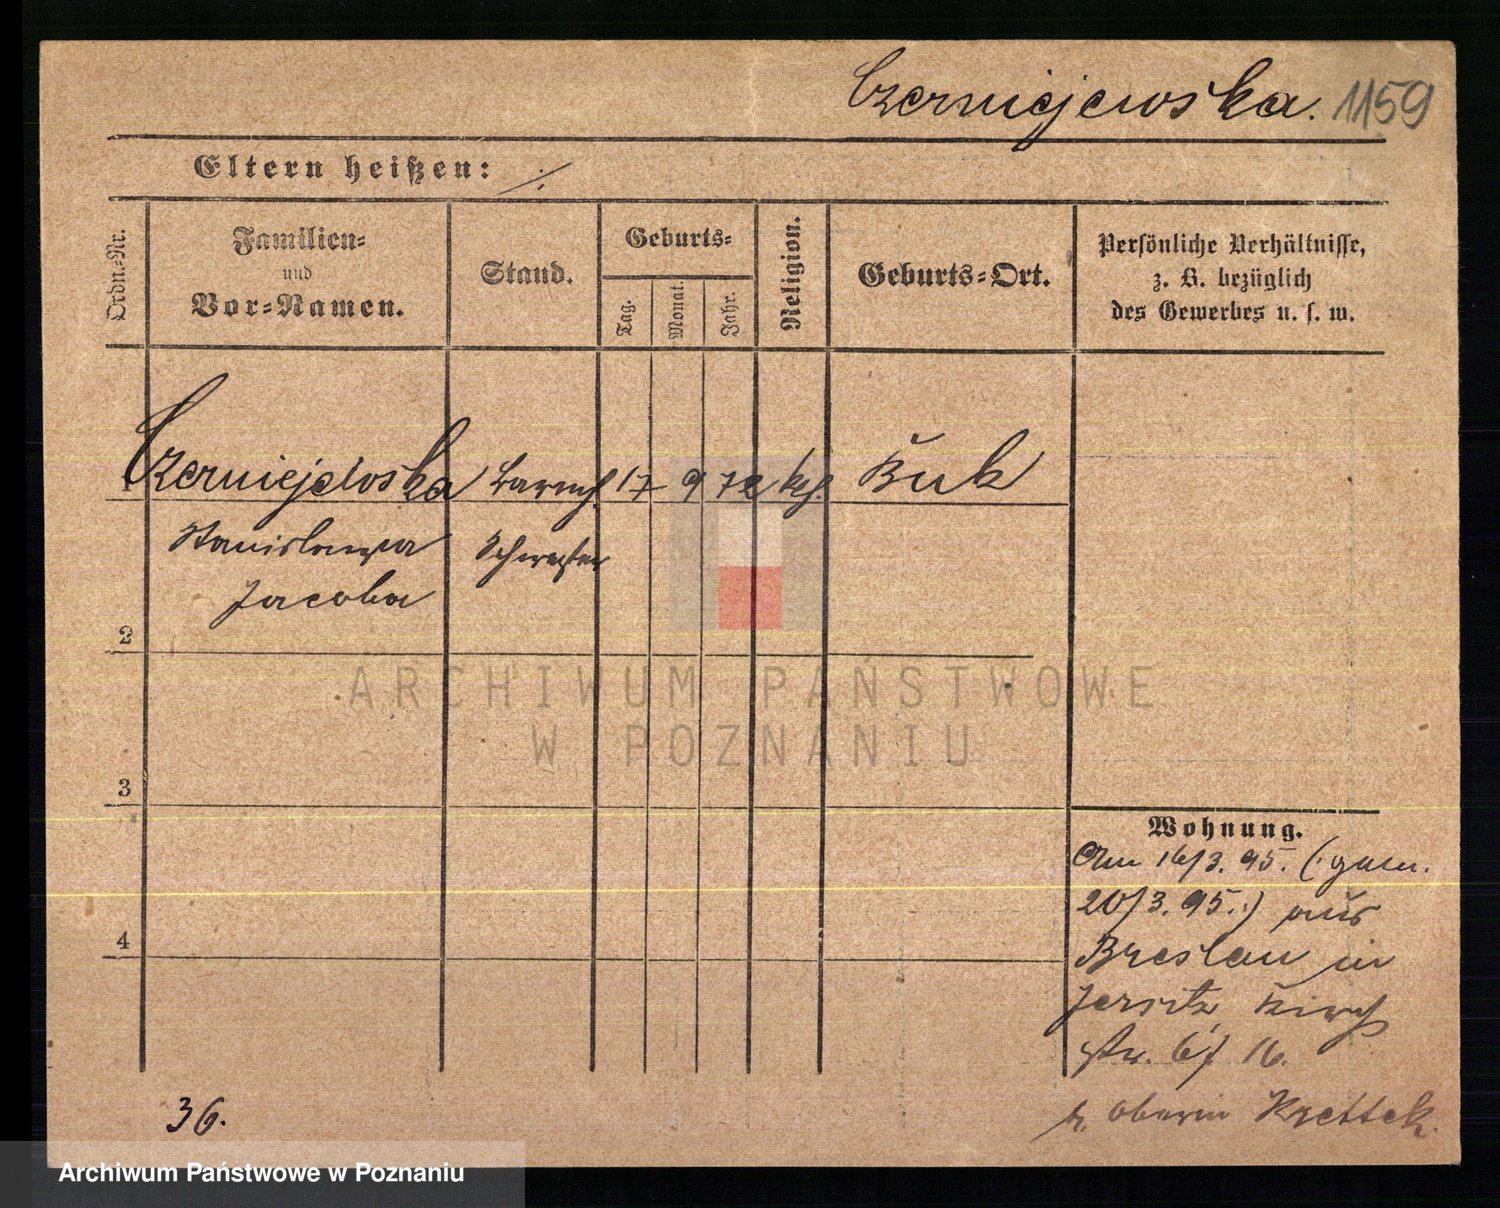 Czerniejewska. 1159
Eltern heißen: ./.
Ordn.-Nr.
Familien-
und
Vor-Namen.
Stand.
Geburts-
Tag.
Monat.
Jahr.
Religion.
Geburts-Ort.
Persönliche Verhältnisse,
z. B. bezüglich
des Gewerbes u. s. w.
1 Czerniejewska Barmh. 17 9 72 kth. Buk
Stanislawa Schwester
Jacoba
2
3
4
Wohnung.
Am 16/3. 95. (: gem.
20/3. 95. :) aus
Breslau in
Jersitz Kirch
str. 6/ 16.
b. Oberin Krettek.
36.
ARCHIWUM PAŃSTWOWE
W POZNANIU
Archiwum Państwowe w Poznaniu